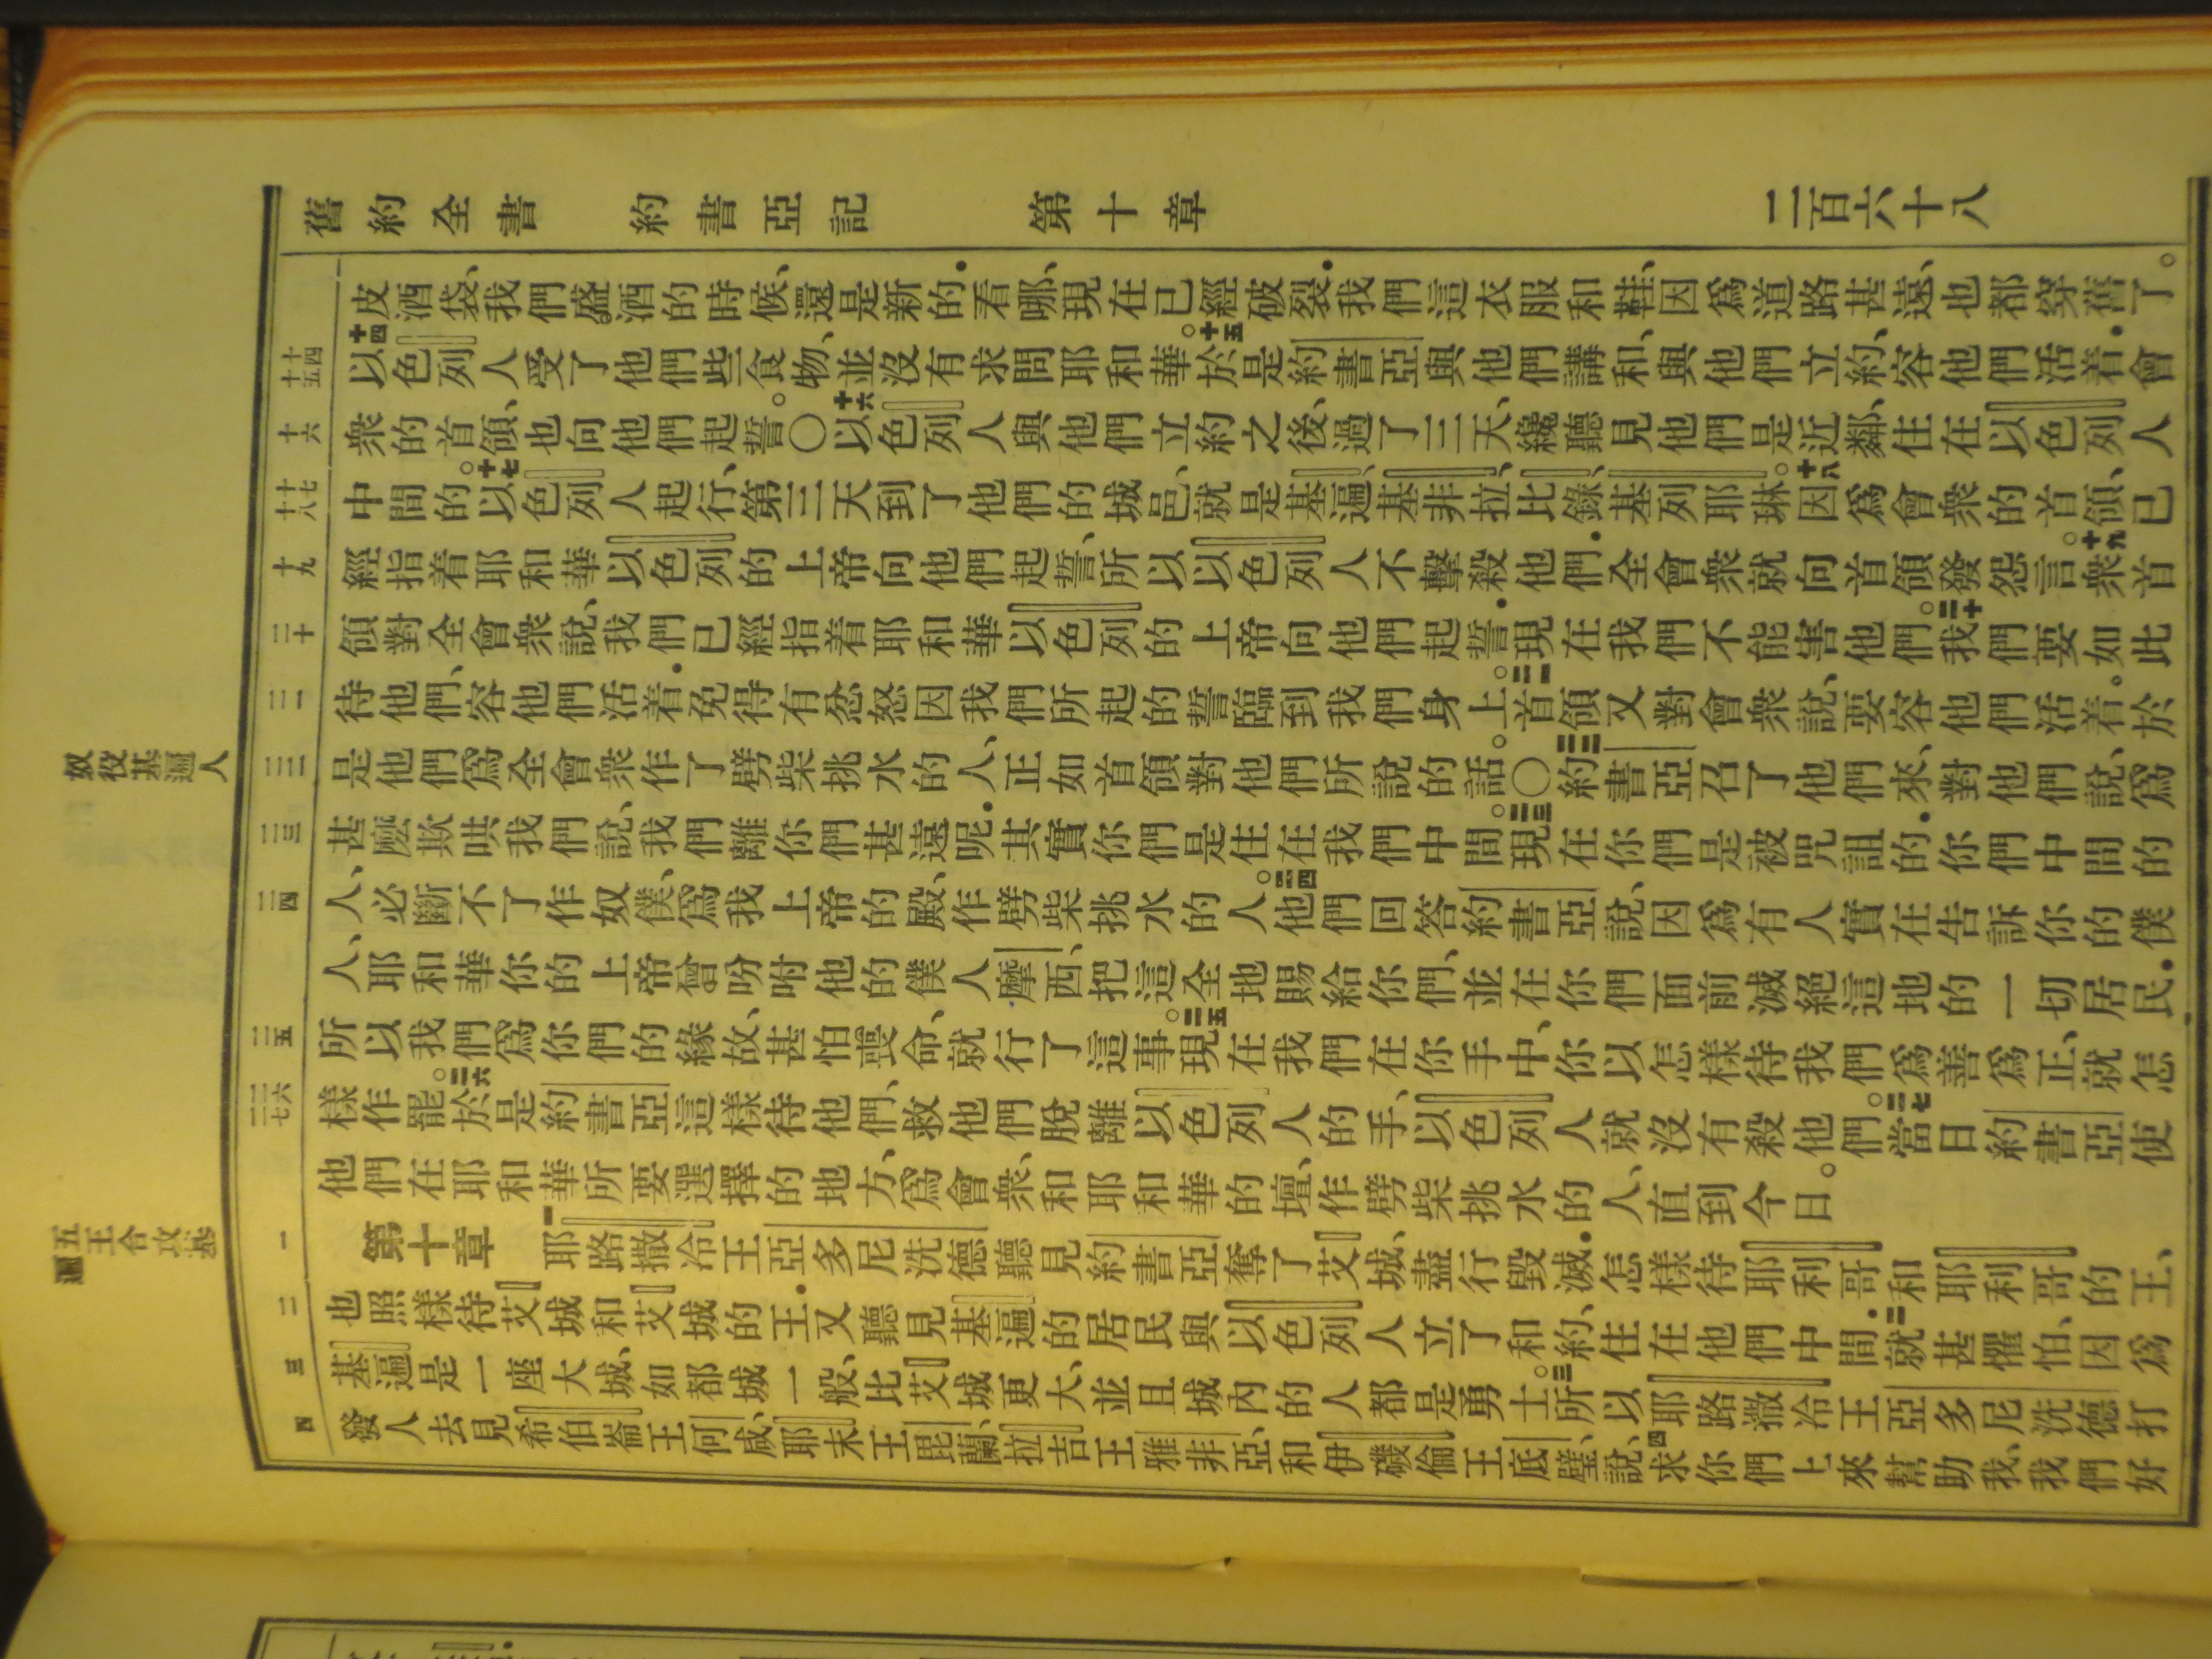 舊約全書　約書亞記　第十章　二百六十八
奴役基遍人
五王合攻基遍
十四
十五
十六
十七
十八
十九
二十
二一
二二
二三
二四
二五
二六
二七
一
二
三
四
皮酒袋、我們盛酒的時候、還是新的．看哪、現在已經破裂．我們這衣服和鞋、因爲道路甚遠、也都穿舊了。
十四以色列人受了他們些食物、並沒有求問耶和華。十五於是約書亞與他們講和、與他們立約、容他們活着．會
衆的首領、也向他們起誓。〇十六以色列人與他們立約之後、過了三天、纔聽見他們是近鄰、住在以色列人
中間的。十七以色列人起行、第三天到了他們的城邑、就是基遍、基非拉、比錄、基列耶琳。十八因爲會衆的首領、已
經指着耶和華以色列的上帝向他們起誓、所以以色列人不擊殺他們．全會衆就向首領發怨言。十九衆首
領對全會衆說、我們已經指着耶和華以色列的上帝向他們起誓．現在我們不能害他們。二十我們要如此
待他們、容他們活着．免得有忿怒因我們所起的誓臨到我們身上。二一首領又對會衆說、要容他們活着。於
是他們爲全會衆作了劈柴挑水的人、正如首領對他們所說的話。〇二二約書亞召了他們來、對他們說、爲
甚麼欺哄我們說、我們離你們甚遠呢．其實你們是住在我們中間。二三現在你們是被咒詛的．你們中間的
人、必斷不了作奴僕、爲我上帝的殿、作劈柴挑水的人。二四他們回答約書亞說、因爲有人實在告訴你的僕
人、耶和華你的上帝曾吩咐他的僕人摩西、把這全地賜給你們、並在你們面前滅絕這地的一切居民．
所以我們爲你們的緣故、甚怕喪命、就行了這事。二五現在我們在你手中、你以怎樣待我們爲善爲正、就怎
樣作罷。二六於是約書亞這樣待他們、救他們脫離以色列人的手、以色列人就沒有殺他們。二七當日約書亞使
他們在耶和華所要選擇的地方、爲會衆、和耶和華的壇、作劈柴挑水的人、直到今日。
第十章　一耶路撒冷王亞多尼洗德聽見約書亞奪了艾城、盡行毀滅．怎樣待耶利哥和耶利哥的王、
也照樣待艾城和艾城的王．又聽見基遍的居民與以色列人立了和約、住在他們中間．二就甚懼怕、因爲
基遍是一座大城、如都城一般、比艾城更大、並且城內的人都是勇士。三所以耶路撒冷王亞多尼洗德打
發人去見希伯崙王何咸、耶末王毘蘭、拉吉王雅非亞、和伊磯倫王底璧、說、四求你們上來幫助我、我們好